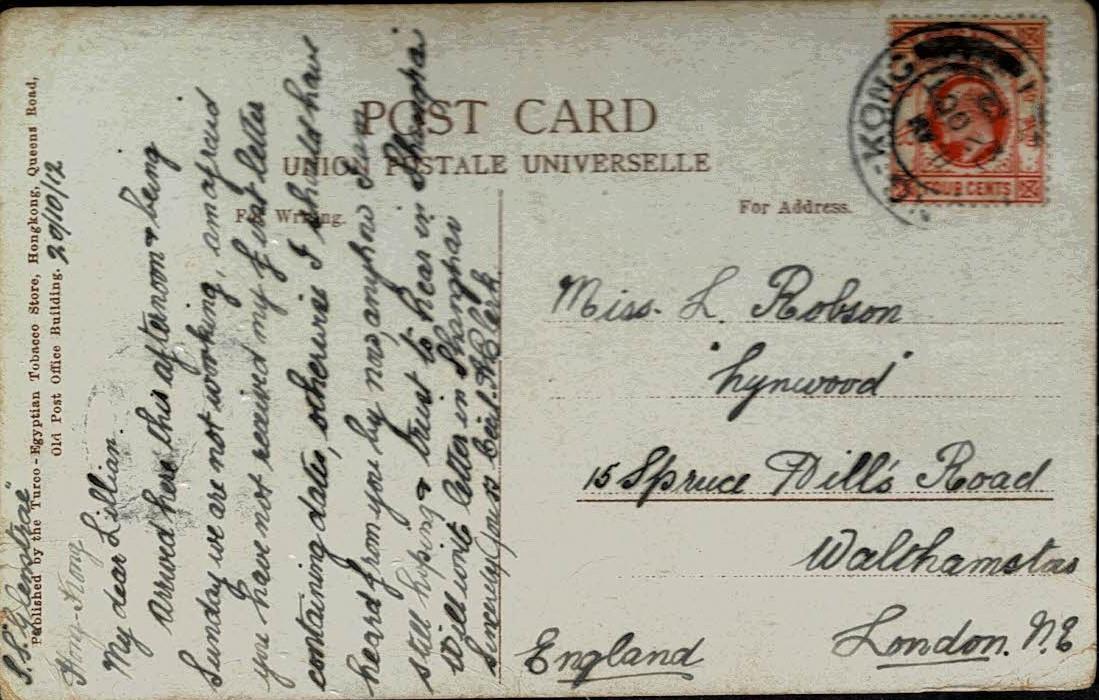 POST CARD
UNION POSTALE UNIVERSELLE
For Writing.
For Address.
Published by the Turco-Egyptian Tobacco Store, Hongkong, Queens Road,
Old Post Office Building.
S.S. "Glenstrae"
Hong-Kong
20/10/12
My dear Lillian.
arrived here this afternoon & being
Sunday we are not working, am afraid
you have not received my first letter
containing dates, otherwise I should have
heard from you by now, anyhow I am
still hoping & trust to hear in Shanghai
Will write letter in Shanghai
Sincerely Yours Ceil. H. Clark
KONG
OCT
12
FOUR CENTS
Miss. L. Robson
"Lynwood"
15 Spruce Hill's Road
Walthamstow
London. N.E
England